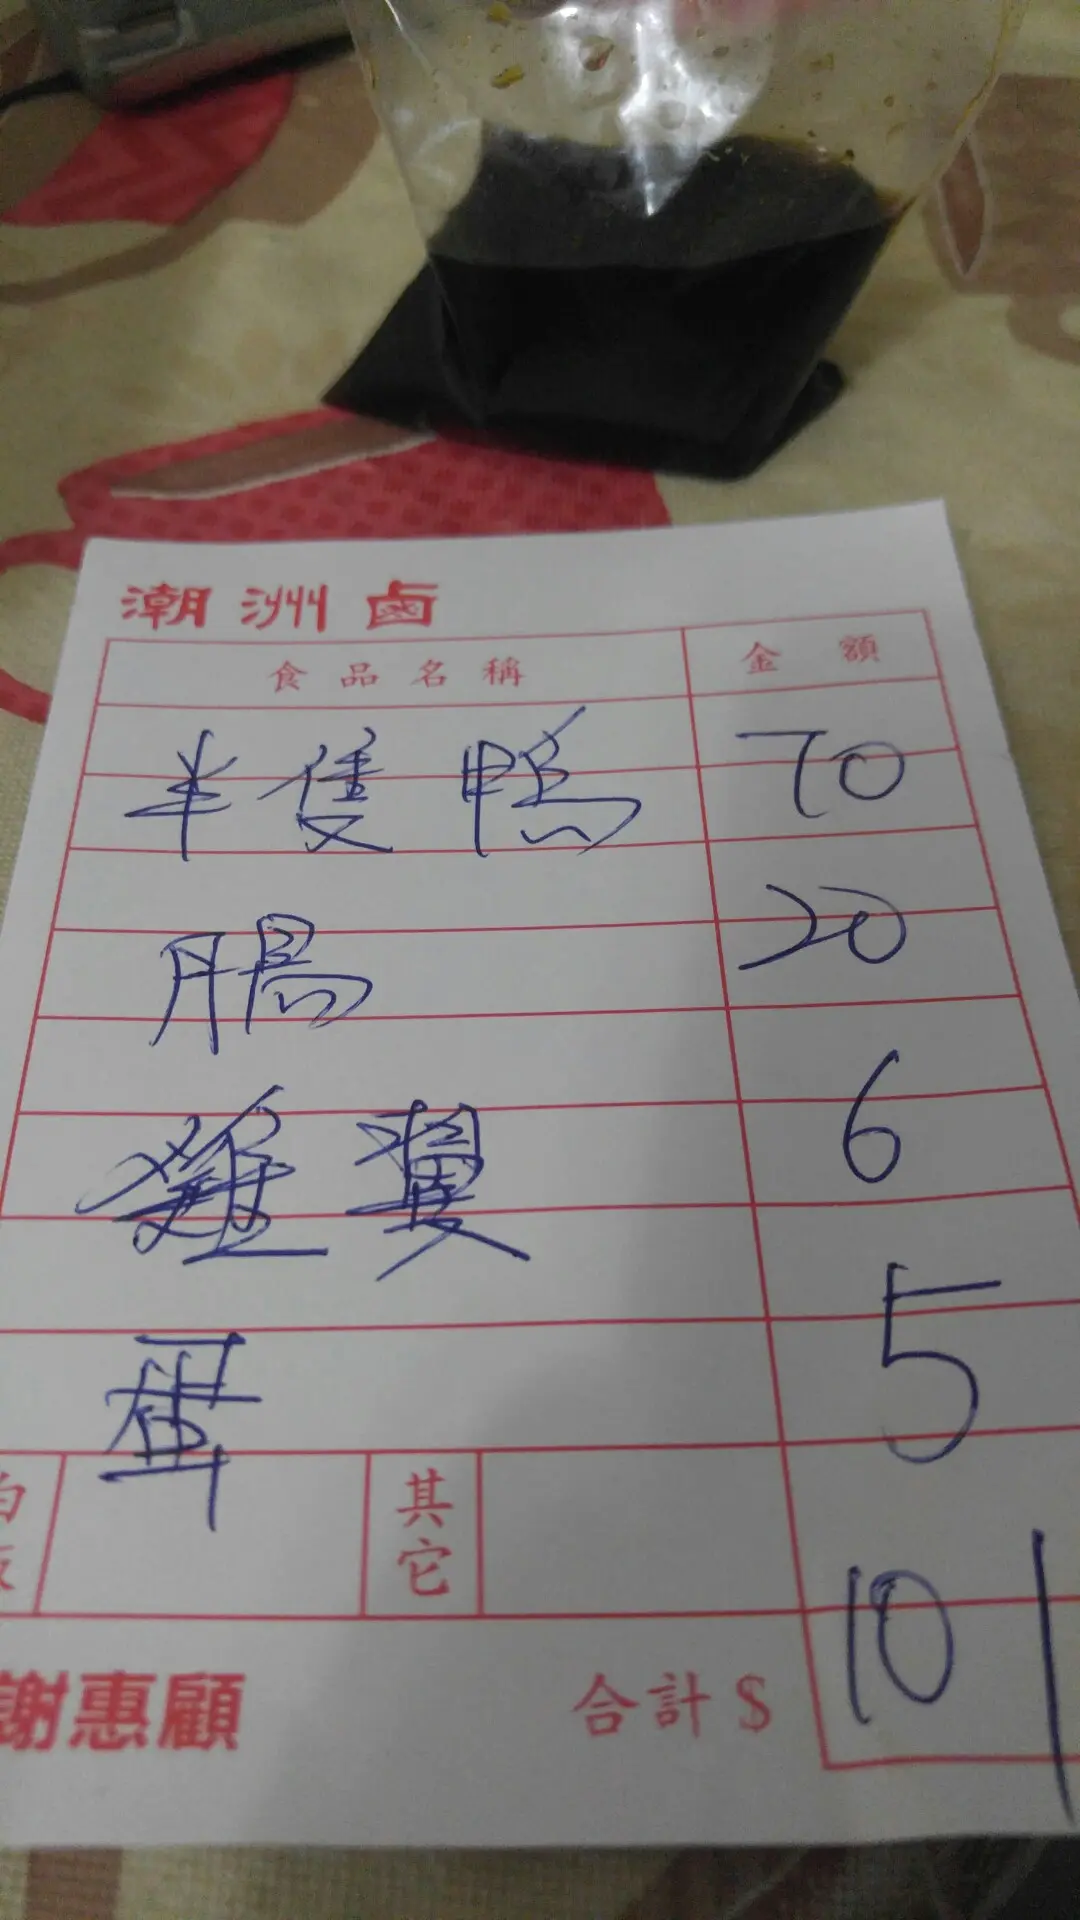 潮洲鹵
食品名稱 金額
半隻鴨 70
腸 20
雞翼 6
蛋 5
其它
謝惠顧 合計$ 101